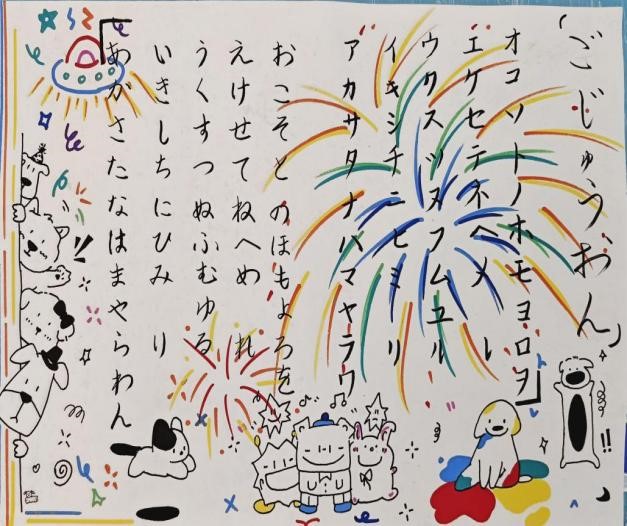 「ごじゅうおん」
オコソトノホモヨロヲ
エケセテネヘメ レ
ウクスツヌフムユル
イキシチニヒミ リ
アカサタナハマヤラワ
おこそとのほもよろを
えけせてねへめ れ
うくすつぬふむゆる
いきしちにひみ り
あかさたなはまやらわん